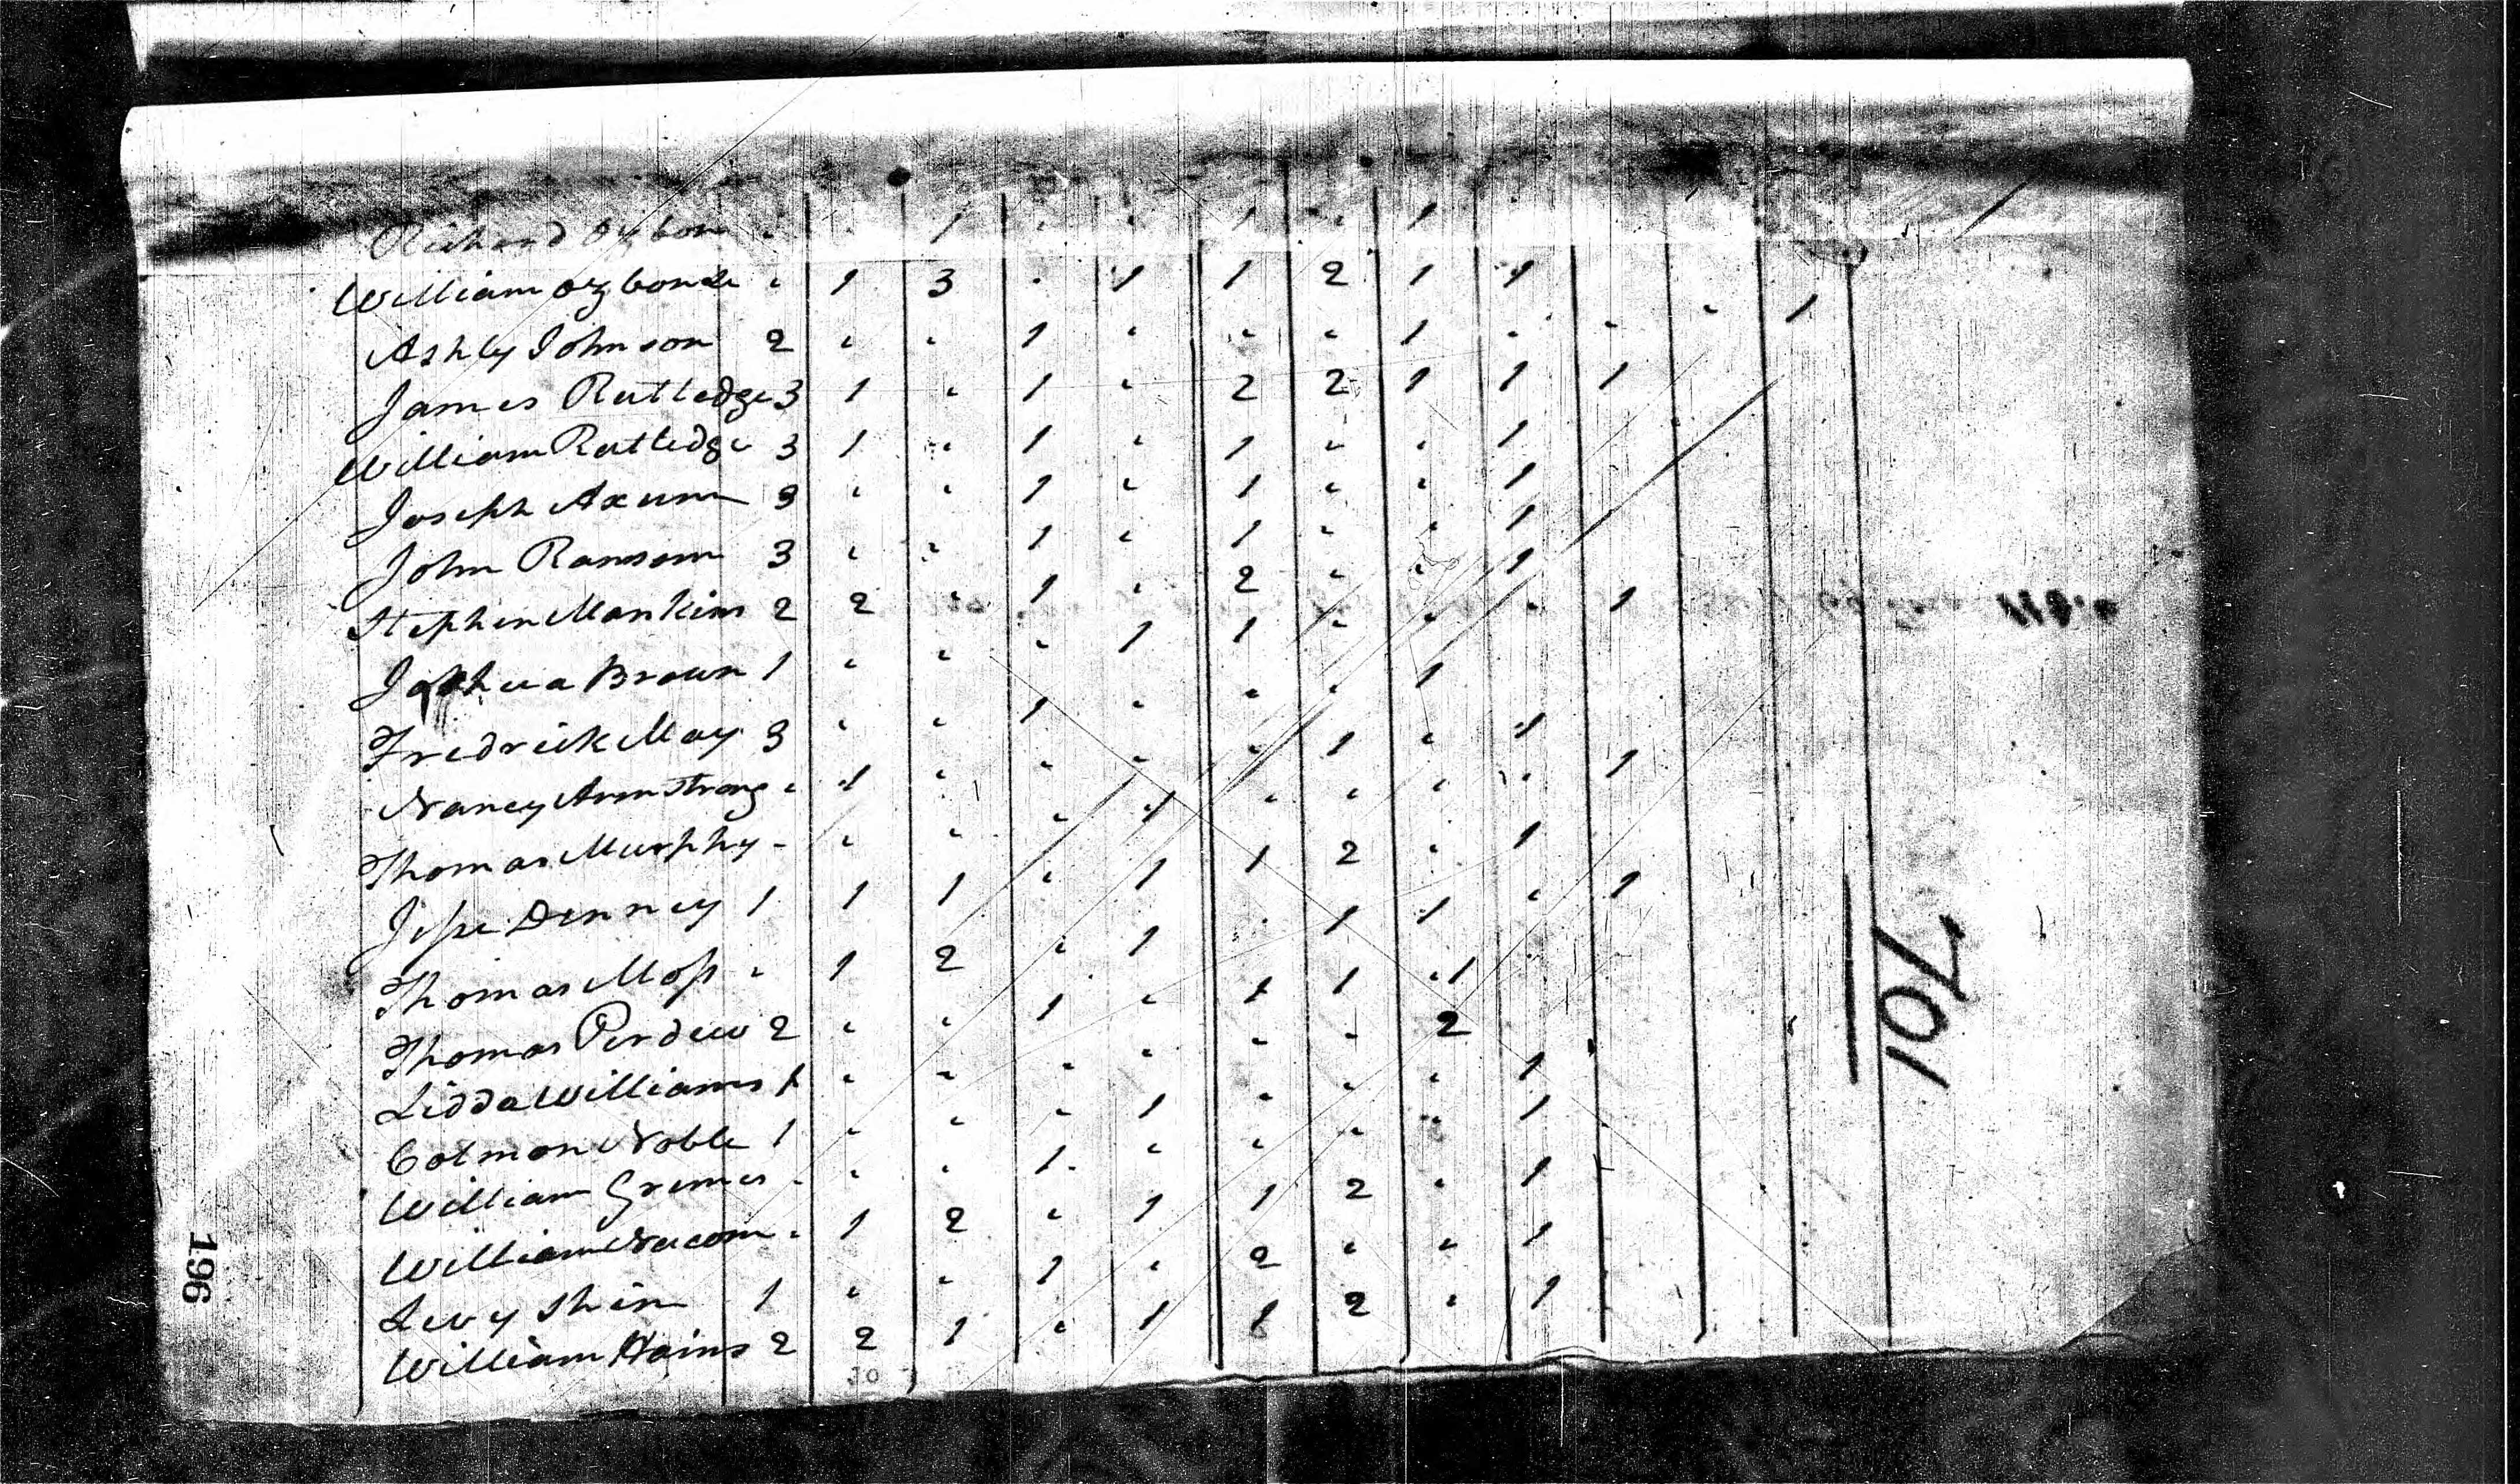 Richard Ozborn . . 1 . . 1 . 1
William ozbonde . 1 3 . 1 1 2 1 1
Ashly Johnson 2 . . 1 . . . 1 . . . 1
James Rutledge 3 1 . 1 . 2 2 1 1 1
William Rutledge 3 1 . 1 . 1 . . 1
Joseph Axum 3 . . 1 . 1 . . 1
John Ransom 3 . . 1 . 1 . . 1
Stephen Mankins 2 2 . 1 . 2 . . 1
Joshua Brown 1 . . . 1 1 . . . 1
Fredrick May 3 . . 1 . . . 1
Nancy Armstrong . 1 . . . . 1 . 1
Thomas Murphy - . . . 1 . . . . 1
Jesse Denney 1 1 1 . 1 1 2 . 1
Thomas Moss . 1 2 . 1 . 1 1 . 1
Thomas Perdew 2 . . 1 . 1 1 . 1
Lidda Williams 1 . . . . . . 2
Colmon Noble 1 . . . 1 . . . 1
William Grimes . . . 1 . . . . 1
William Nucom . 1 2 . 1 1 2 . 1
Levy Shin 1 . . 1 . 2 . . 1
William Hains 2 2 1 . 1 1 2 . 1
701
196